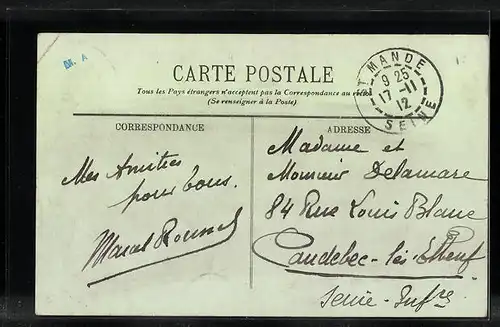 M. A
CARTE POSTALE
Tous les Pays étrangers n'acceptent pas la Correspondance au recto
(Se renseigner à la Poste)
ST MANDE
9 25
17-11
12
SEINE
CORRESPONDANCE
Mes Amitiés
pour tous.
Marcel
ADRESSE
Madame et
Monsieur Delamare
84 Rue Louis Blanc
Caudebec-lès-Elbeuf
Seine-Infre